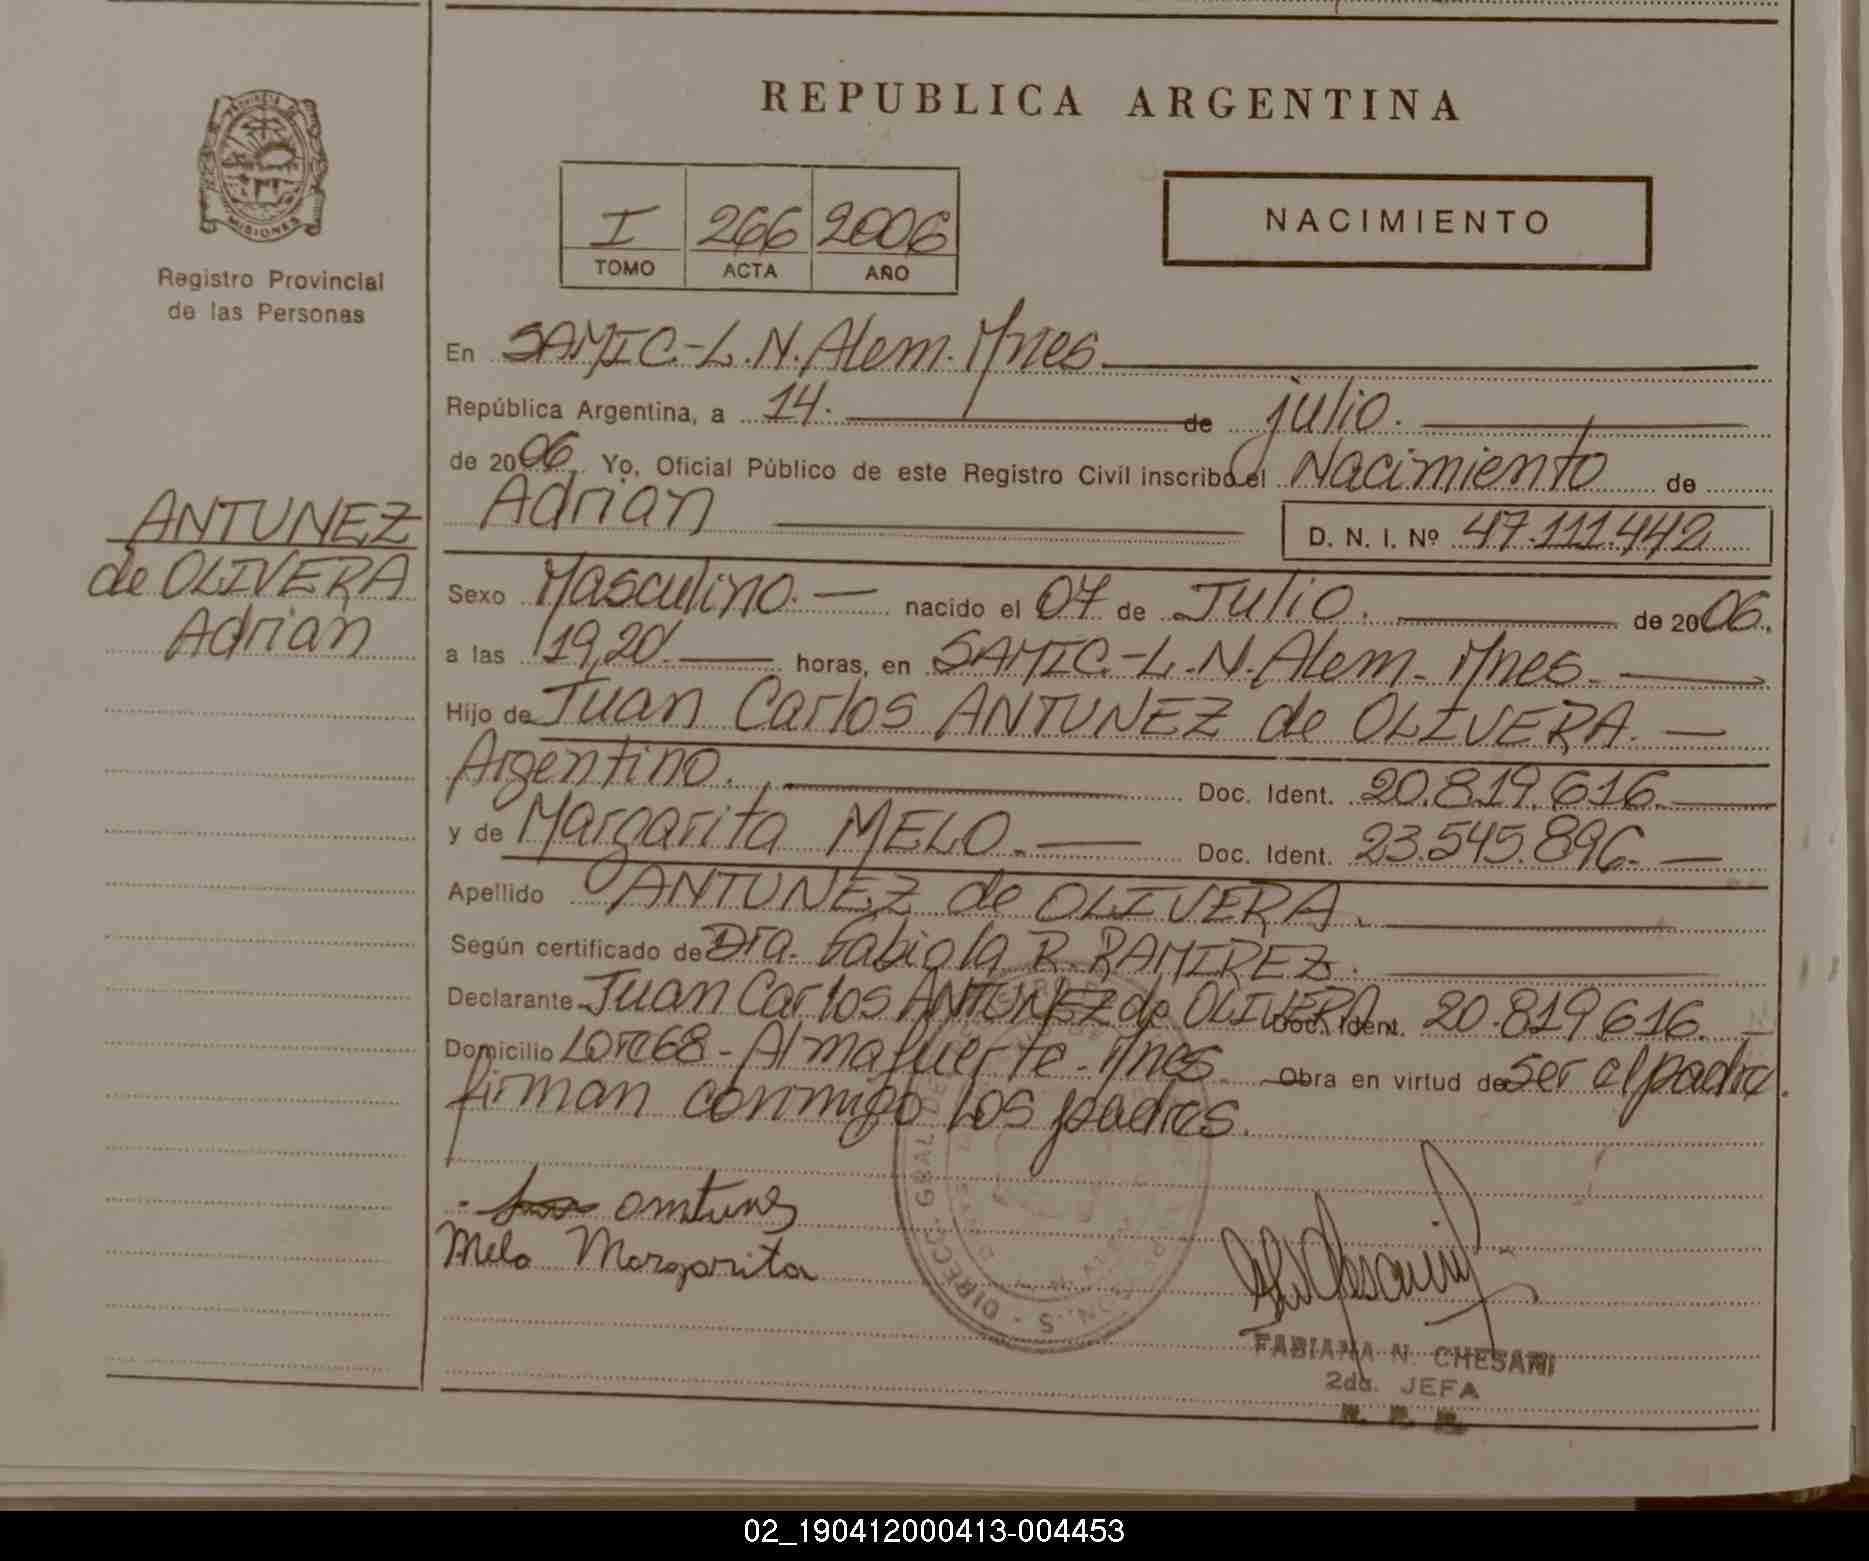 REPUBLICA ARGENTINA
PROVINCIA DE
MISIONES
Registro Provincial
de las Personas
I 266 2006
TOMO ACTA AÑO
NACIMIENTO
ANTUNEZ
de OLIVERA
Adrian
En SAMIC.-L.N.Alem. Mnes
República Argentina, a 14. de julio.
de 2006, Yo, Oficial Público de este Registro Civil inscribo el Nacimiento de
Adrian D. N. I. Nº 47.111.442
Sexo Masculino. nacido el 07 de Julio. de 2006.
a las 19,20 horas, en SAMIC.-L.N.Alem. Mnes.
Hijo de Juan Carlos ANTUNEZ de OLIVERA.
Argentino. Doc. Ident. 20.819.616
y de Margarita MELO. Doc. Ident. 23.545.896.
Apellido ANTUNEZ de OLIVERA.
Según certificado de Dra. Fabiola R. RAMIREZ.
Declarante Juan Carlos ANTUNEZ de OLIVERA Doc. Ident. 20.819616.
Domicilio Lote 68 - Almafuerte - Mnes. Obra en virtud de ser el padre.
firman conmigo los padres.
antunez
Melo Margarita
FABIANA N. CHESANI
2da. JEFA
02_190412000413-004453